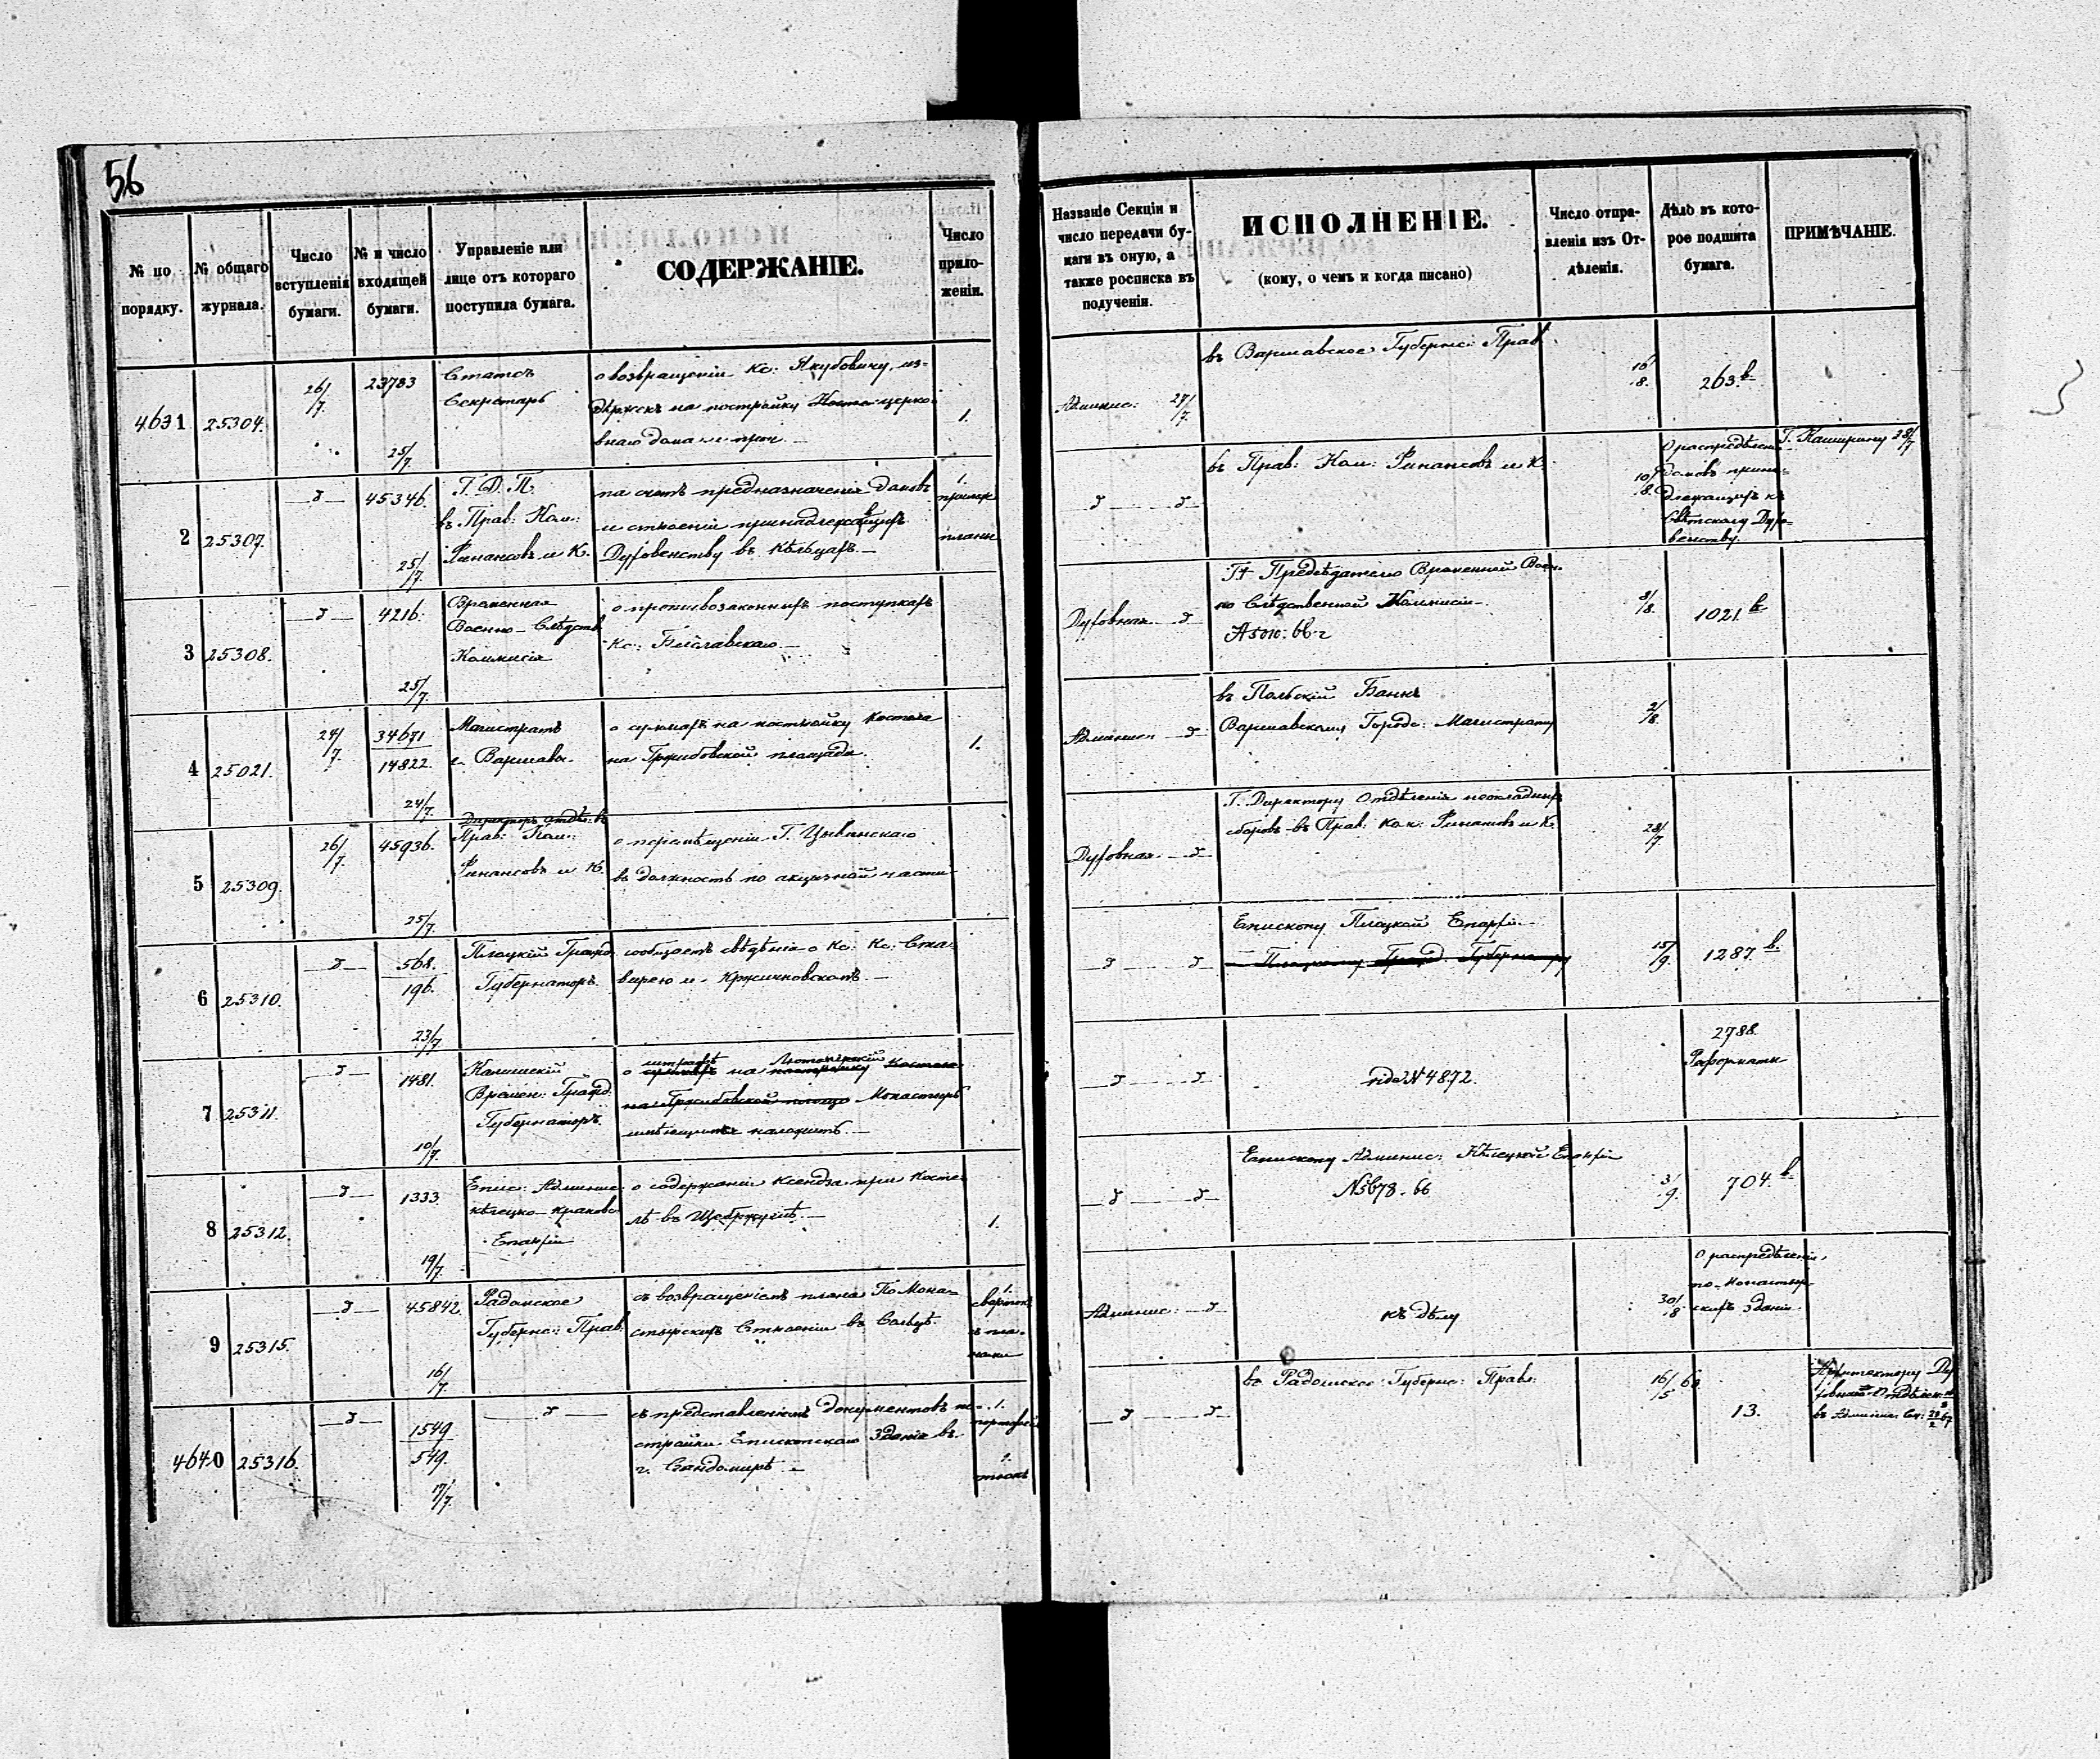 56
№ по порядку.
№ общаго журнала.
Число вступленія бумаги.
№ и число входящей бумаги.
Управленіе или лице отъ котораго поступила бумага.
СОДЕРЖАНІЕ.
Число приложеніи.
Названіе Секціи и число передачи бумаги въ оную, а также росписка въ полученіи.
ИСПОЛНЕНІЕ.
(кому, о чемъ и когда писано)
Число отправленія изъ Отдѣленія.
Дѣло въ которое подшита бумага.
ПРИМѢЧАНІЕ.
4631 25304. 26/7. 23783 25/7.
Статсъ
Секретарь
о возвращеніи Кс: Якубовичу, из-
держекъ на постройку церко-
внаго дома и проч.
1.
Админис: 27/7.
въ Варшавское Губернс: Прав.
16/8.
263.
2 25307. 45346. 25/7.
Г. Д. П.
въ Прав: Ком:
Финансовъ и К.
на счетъ предназначенія домовъ
и строеніи принадлежащихъ
Духовенству въ Кѣльцахъ.
1.
планы
въ Прав: Ком: Финансовъ и К.
10/8.
О распредѣленіи
домовъ прина-
длежащихъ къ
Свѣтскому Духо-
венству.
Г. Каширину 28/7
3 25308. 4216. 25/7.
Временная
Военно-Слѣдств.
Комисія
о противозаконныхъ поступкахъ
Кс:
Духовная
Г. Предсѣдателю Временной Воен-
но Слѣдственной Коммисіи
8/8.
1021.
4 25021. 24/7. 34671
14822. 24/7.
Магистратъ
г. Варшавы.
о суммахъ на постройку Костела
на Гржибовской площади.
1.
Админис:
въ Польскій Банкъ
Варшавскому Городс: Магистрату
2/8.
5 25309. 26/7. 45936. 25/7.
Директоръ отдѣл: въ
Прав: Ком:
Финансовъ и К.
о перемѣщеніи Г.
въ должность по акцизной части
Духовная
Г. Директору Отдѣленія неокладныхъ
сборовъ въ Прав: Ком: Финансовъ и К.
28/7.
6 25310. 568.
196. 23/7.
Плоцкій Гражд.
Губернаторъ.
сообщаетъ свѣдѣнія о Кс: Кс:
Епископу Плоцкой Епархіи
Плоцкому Гражд. Губернатору
15/9.
1287.
7 25311. 1481. 10/7.
Калишскій
Времен: Гражд.
Губернаторъ.
штрафъ
о суммахъ на постройку Костела
на Гржибовской площ: Монастырь
наложить.
vide № 4872.
2788.
Реформаты
8 25312. 1333. 19/7.
Епис: Админис:
Кѣлецко-Краковс:
Епархіи
о содержаніи Ксендза при Косте-
лѣ въ
1.
Епископу Админис: Кѣлецкой Епархіи
№ 5678. 66
3/9.
704.
9 25315. 45842. 16/7.
Радомское
Губернс: Прав.
съ возвращеніемъ плана По Мона-
стырскихъ Строеніи въ
1.
свертокъ
Админис:
къ дѣлу
30/8
О распредѣленіи
по-монастыр-
скихъ зданіи.
4640 25316. 1549
549. 17/7.
съ представленіемъ документовъ по-
стройки Епископскаго Зданія въ
г. Сандомирѣ.
1.
1.
въ Радомское Губернс: Прав:
16/5
13.
Архитектору Ду-
ховнаго Отдѣленія